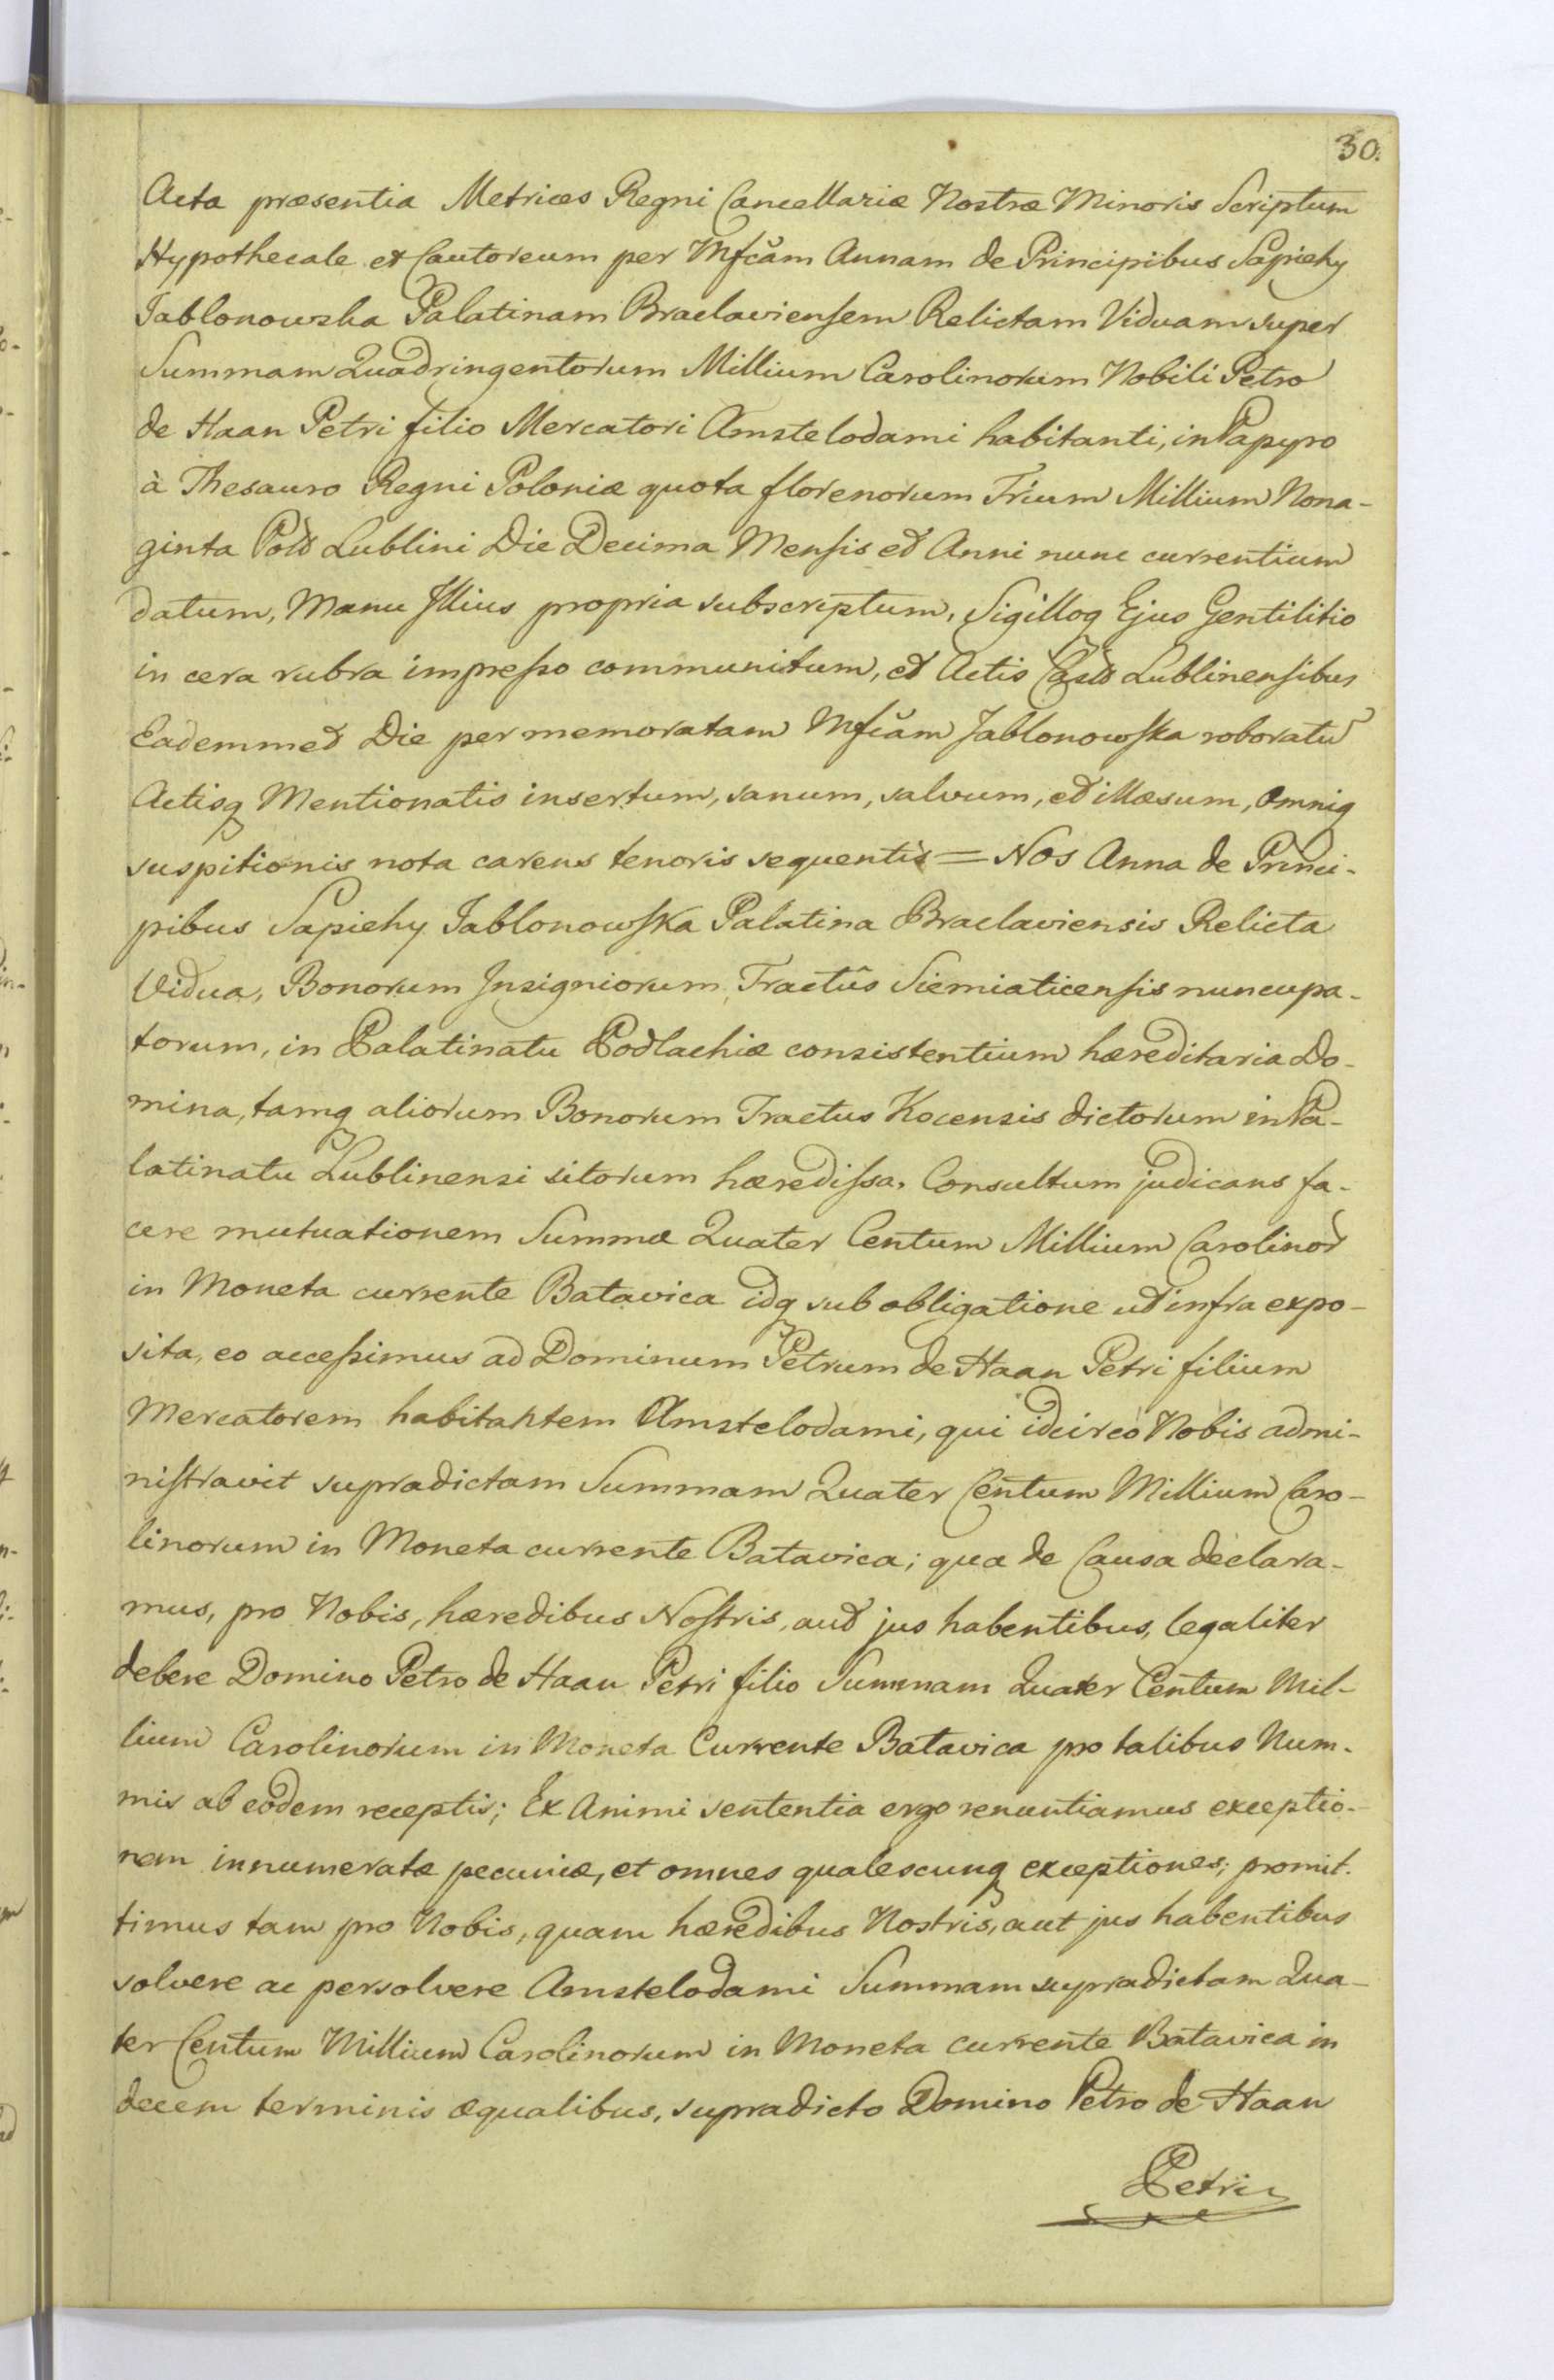 30.
Acta præsentia Metrices Regni Cancellariæ Nostræ Minoris Scriptum
Hypothecale et Cautoreum per Mfcãm Annam de Principibus Sapiehy
Jablonowska Palatinam Braclaviensem Relictam Viduam super
Summam Quadringentorum Millium Carolinorum Nobili Petro
de Haan Petri filio Mercatori Amstelodami habitanti, in Papyro
à Thesauro Regni Poloniæ quota florenorum Trium Millium Nona-
ginta Pold Lublini Die Decima Mensis et Anni nunc currentium
datum, Manu Illius propria subscriptum, Sigilloq Ejus Gentilitio
in cera rubra impresso communitum, et Actis Castd Lublinensibus
Eademmet Die per memoratam Mfcãm Jablonowska roboratũ
Actisq Mentionatis insertum, sanum, salvum, et illæsum, omniq
suspitionis nota carens tenoris sequentis = Nos Anna de Princi-
pibus Sapiehy Jablonowska Palatina Braclaviensis Relicta
Vidua, Bonorum Insigniorum Tractûs Siemiaticensis nuncupa-
torum, in Palatinatu Podlachiæ consistentium hæreditaria Do-
mina, tamq aliorum Bonorum Tractus Kocensis dictorum in Pa-
latinatu Lublinensi sitorum hæredissa. Consultum judicans fa-
cere mutuationem Summæ Quater Centum Millium Carolinod
in Moneta currente Batavica idq sub obligatione ut infra expo-
sita, eo accessimus ad Dominum Petrum de Haan Petri filium
Mercatorem habitantem Amstelodami, qui idcirco Nobis admi-
nistravit supradictam Summam Quater Centum Millium Caro-
linorum in Moneta currente Batavica; qua de Causa declara-
mus, pro Nobis, hæredibus Nostris, aut jus habentibus, legaliter
debere Domino Petro de Haan Petri filio Summam Quater Centum Mil-
lium Carolinorum in Moneta Currente Batavica pro talibus Num-
mis ab eodem receptis; Ex Animi sententia ergo renuntiamus exceptio-
nem innumeratæ pecuniæ, et omnes qualescunq exceptiones; promit-
timus tam pro Nobis, quam hæredibus Nostris, aut jus habentibus
solvere ac persolvere Amstelodami Summam supradictam Qua-
ter Centum Millium Carolinorum in Moneta currente Batavica in
decem terminis æqualibus, supradicto Domino Petro de Haan
Petri